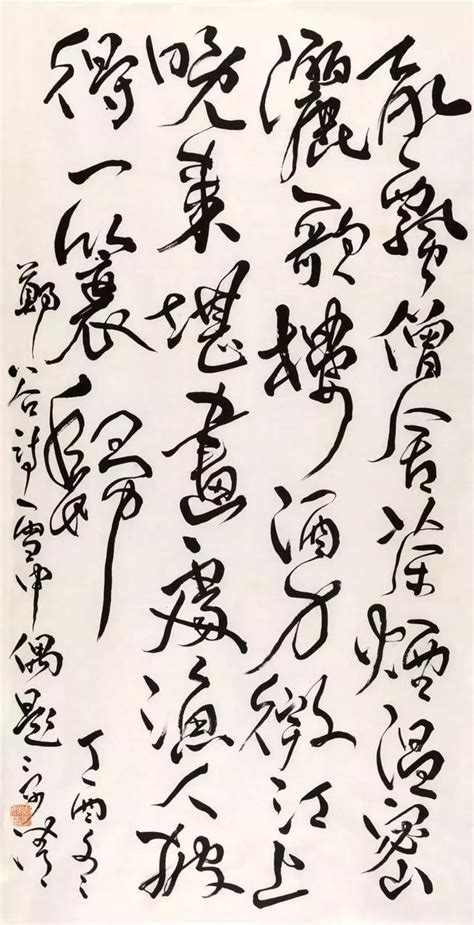 乱飄僧舍茶煙湿密
灑歌樓酒力微江上
晚來堪畫處漁人披
得一蓑歸
鄭谷詩雪中偶題
丁酉